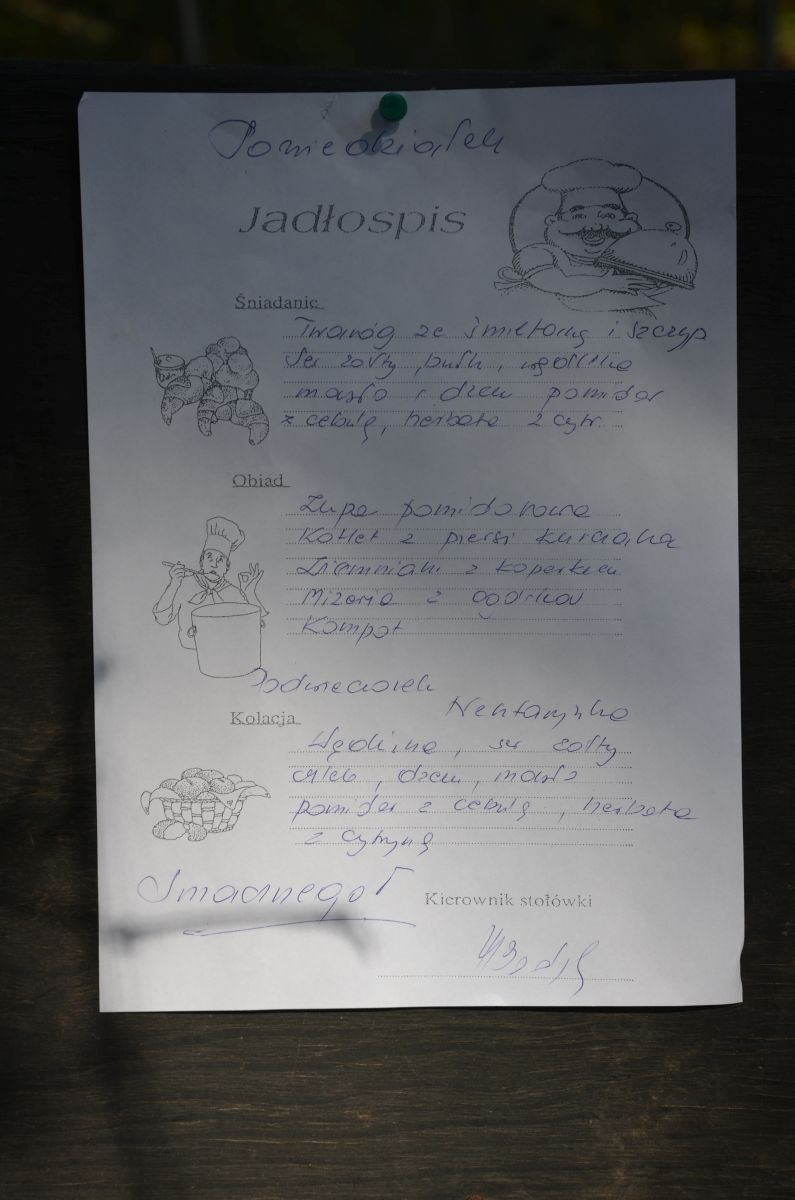 Poniedziałek
Jadłospis
Śniadanie
Twaróg ze śmietaną i szczyp
Ser żółty, bułk, wędlina
masło i dżem pomidor
z cebulą, herbata z cytr.
Obiad
Zupa pomidorowa
Kotlet z piersi kurczaka
Ziemniaki z koperkiem
Mizeria z ogórków
Kompot
Podwieczorek
Nektarynka
Kolacja
Wędlina, ser żółty
chleb, dżem, masło
pomidor z cebulą, herbata
z cytryną
Smacznego!
Kierownik stołówki